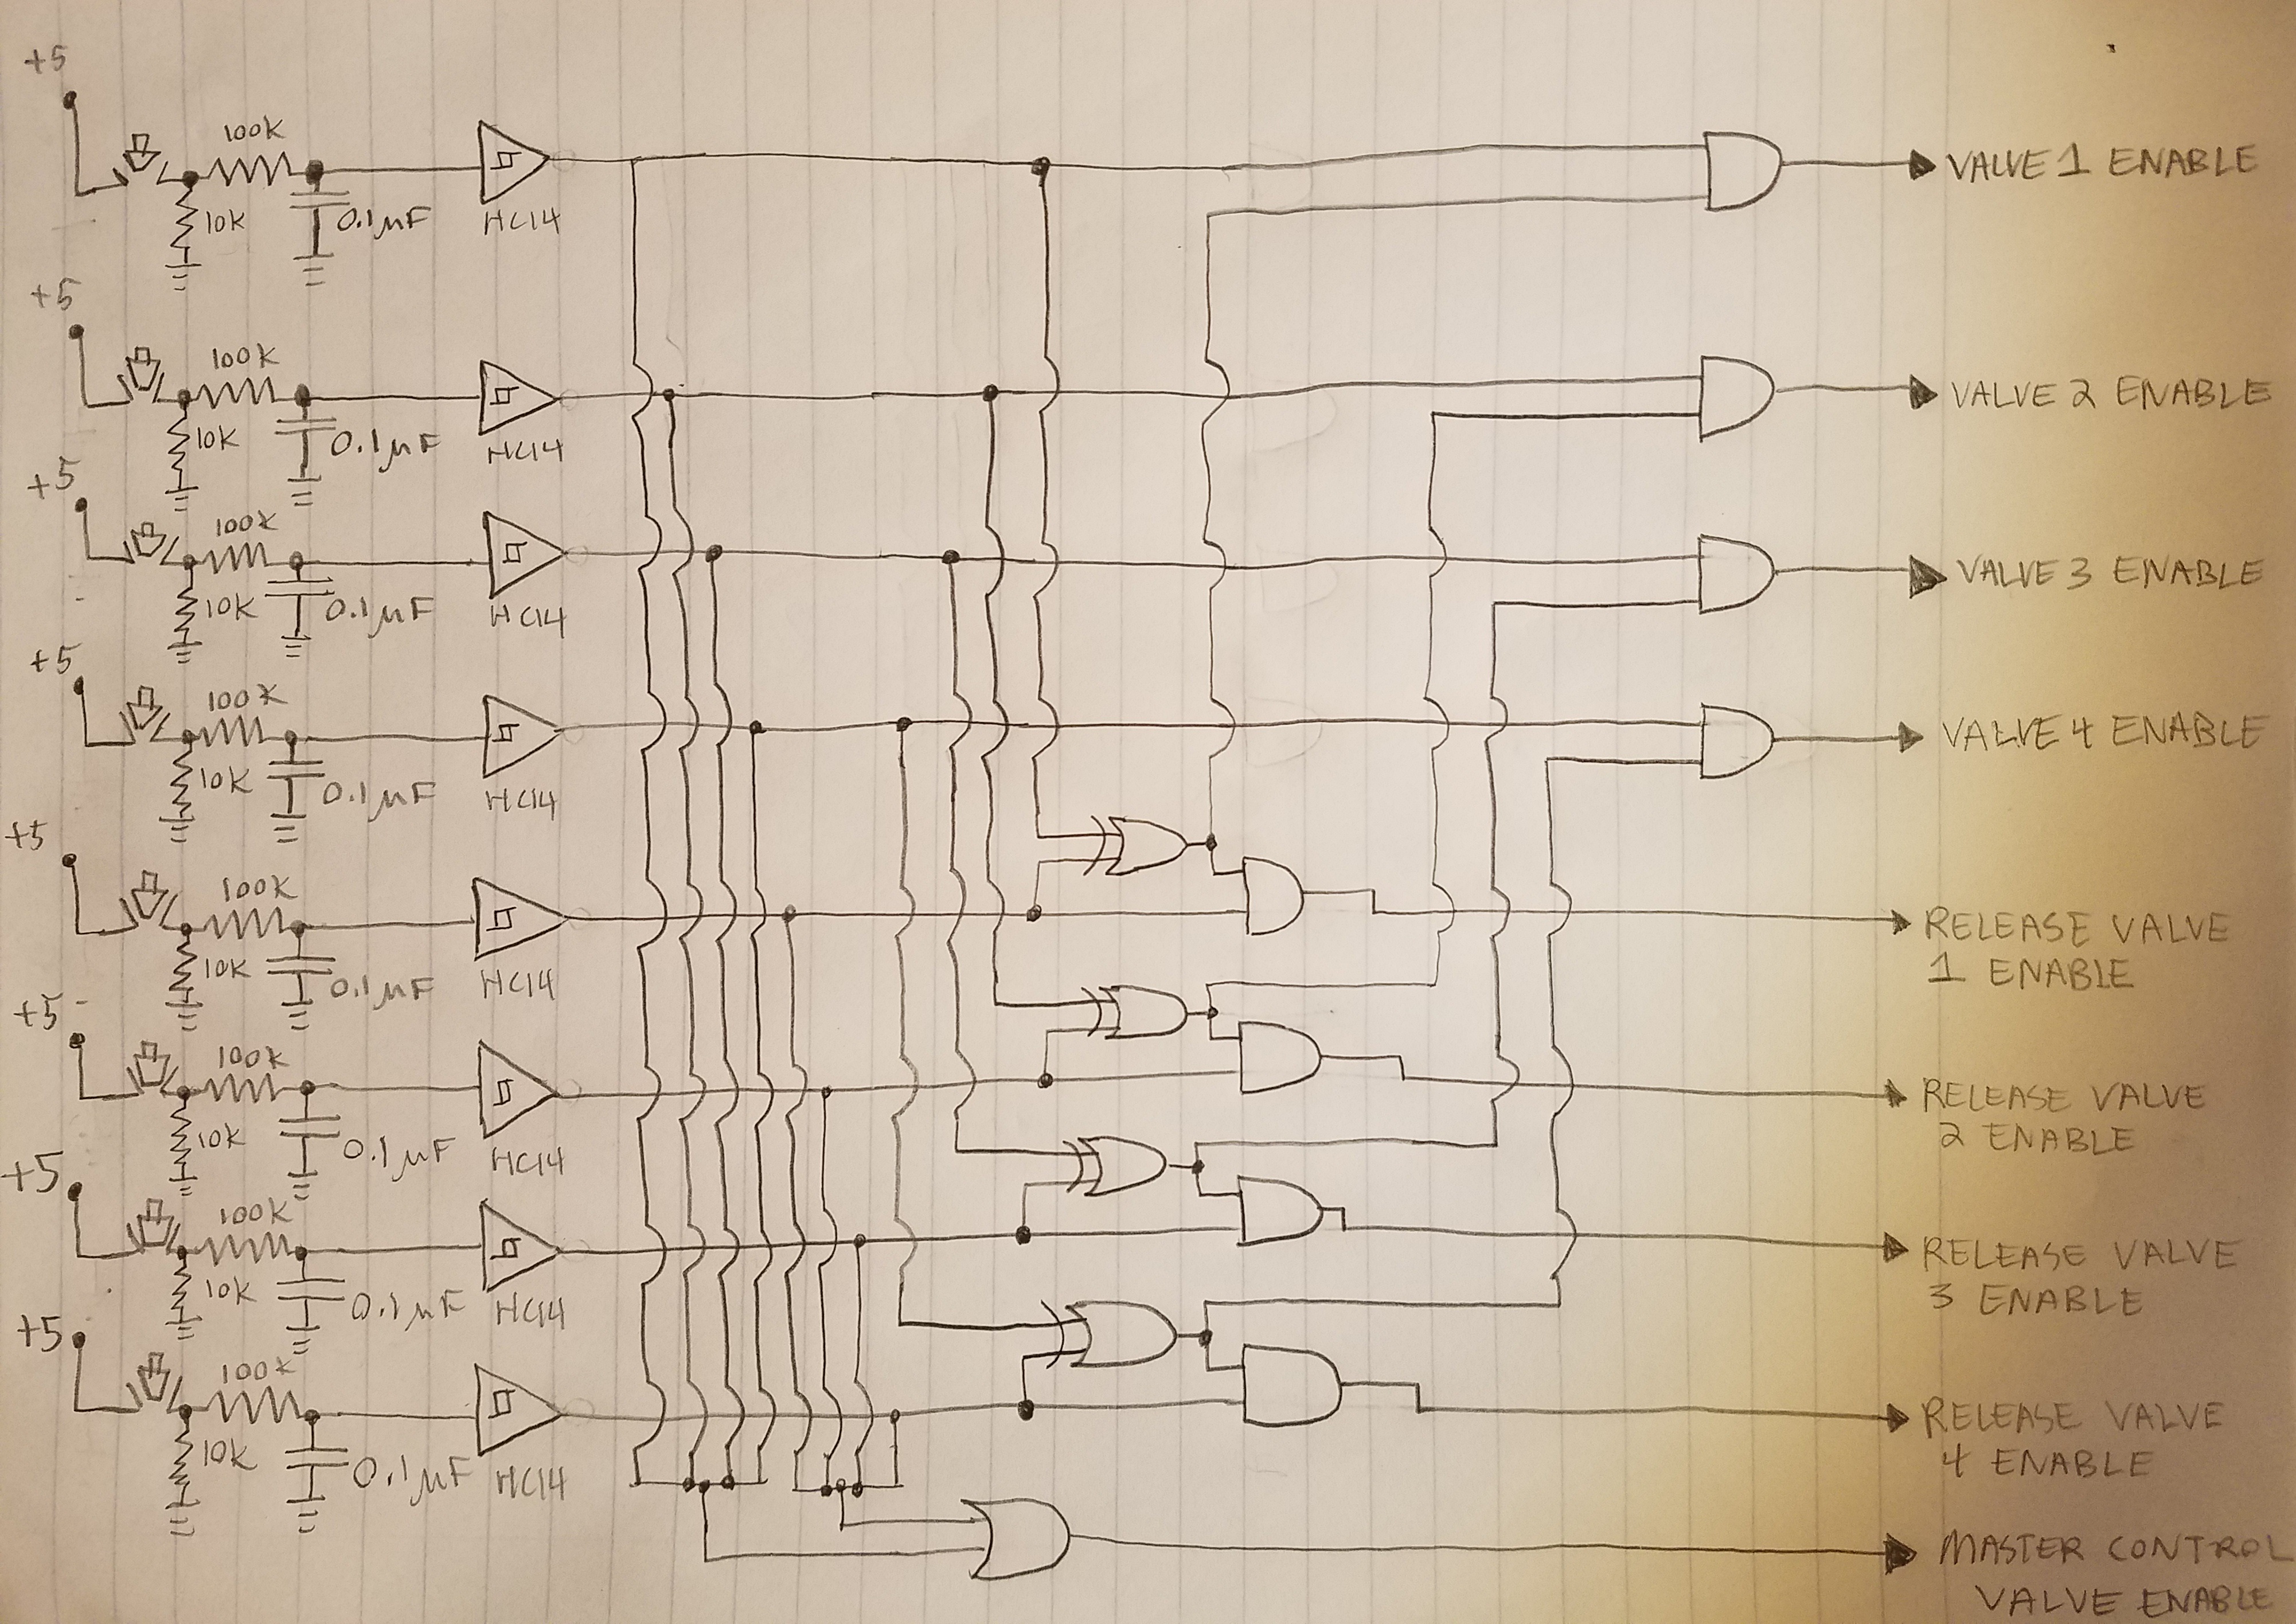 +5
100K
10K
0.1µF
HC14
VALVE 1 ENABLE
+5
100K
10K
0.1µF
HC14
VALVE 2 ENABLE
+5
100K
10K
0.1µF
HC14
VALVE 3 ENABLE
+5
100K
10K
0.1µF
HC14
VALVE 4 ENABLE
+5
100K
10K
0.1µF
HC14
RELEASE VALVE
1 ENABLE
+5
100K
10K
0.1µF
HC14
RELEASE VALVE
2 ENABLE
+5
100K
10K
0.1µF
HC14
RELEASE VALVE
3 ENABLE
+5
100K
10K
0.1µF
HC14
RELEASE VALVE
4 ENABLE
MASTER CONTROL
VALVE ENABLE